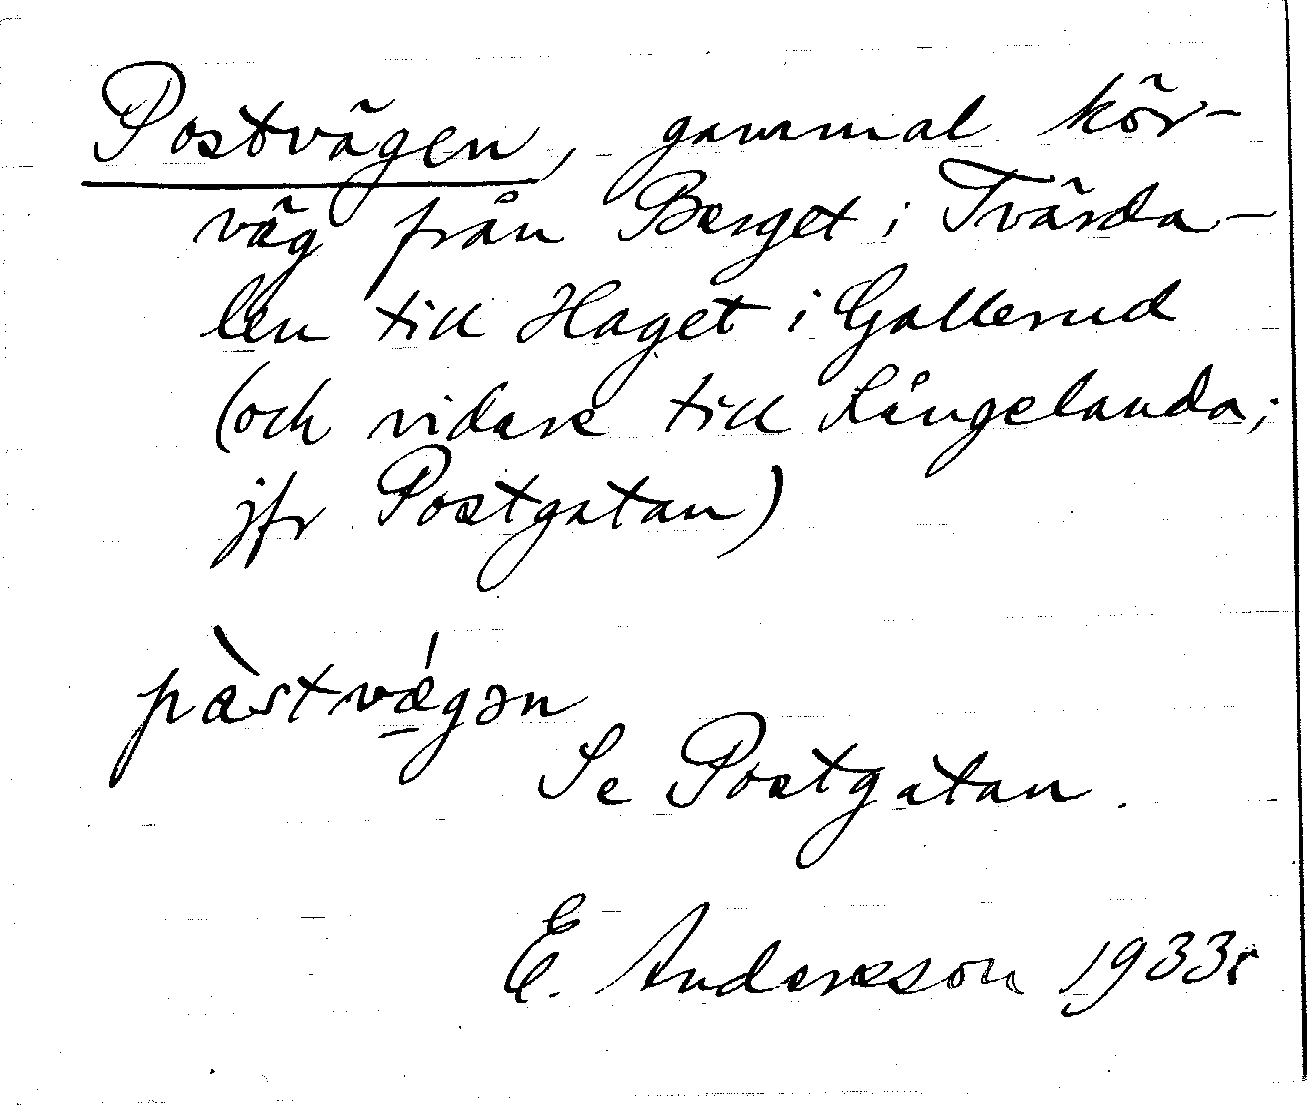 Postvägen, gammal kör-
väg från Berget i Tvärda-
len till Haget i Gallerud
(och vidare till Långelanda;
jfr Postgatan)
pàstvǽgən
Se Postgatan.
E. Andersson 1933.